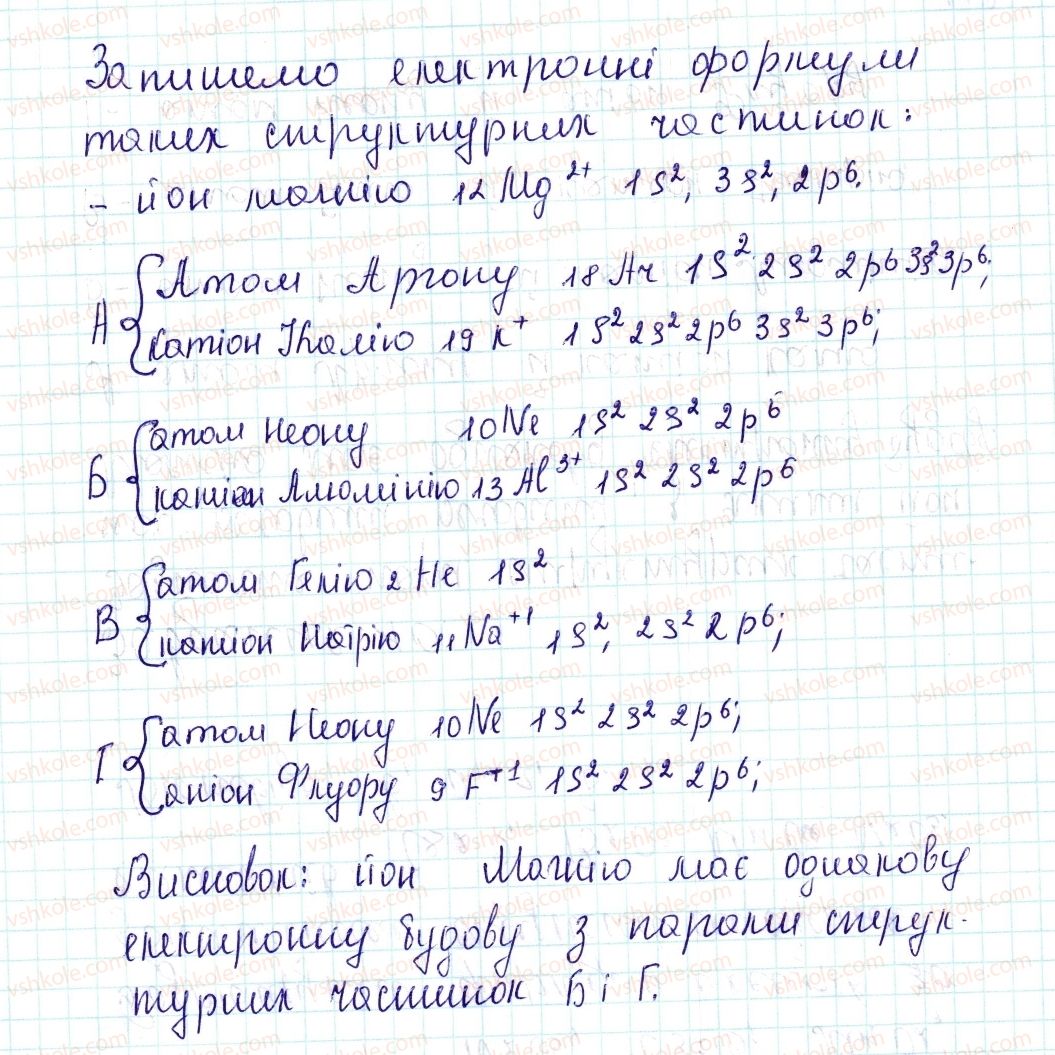 Запишемо електронні формули
таких структурних частинок:
- йон магнію 12 Mg²⁺ 1s², 3s², 2p⁶.
А { Атом Аргону 18 Ar 1s² 2s² 2p⁶ 3s² 3p⁶;
катіон Калію 19 K⁺ 1s² 2s² 2p⁶ 3s² 3p⁶;
Б { атом Неону 10 Ne 1s² 2s² 2p⁶
катіон Алюмінію 13 Al³⁺ 1s² 2s² 2p⁶
В { атом Гелію 2 He 1s²
катіон Натрію 11 Na⁺¹ 1s², 2s² 2p⁶;
Г { атом Неону 10 Ne 1s² 2s² 2p⁶;
аніон Флуору 9 F⁺¹ 1s² 2s² 2p⁶;
Висновок: йон Магнію має однакову
електронну будову з парами струк-
турних частинок Б і Г.